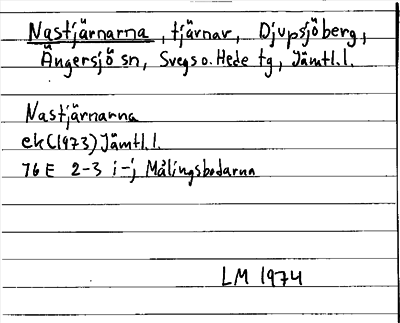 Nastjärnarna, tjärnar, Djupsjöberg,
Ängersjö sn, Svegs o. Hede tg, Jämtl.l.
Nastjärnarna
ek(1973) Jämtl.l.
16E 2-3 i-j Målingsbodarna
LM 1974